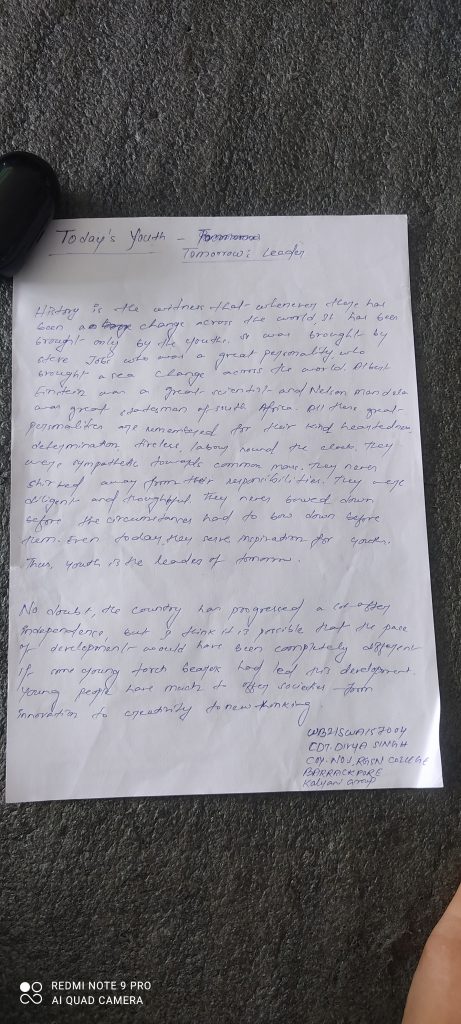 Today's Youth - Tomorrow's Leader
History is the witness that whenever there has
been a change across the world, it has been
brought only by the youths. It was brought by
Steve Jobs who was a great personality, who
brought a sea change across the world. Albert
Einstein was a great scientist and Nelson mandela
was great statesman of south Africa. All these great
personalities are remembered for their kind heartedness,
determination tireless, labour round the clock. They
were sympathetic towards common man. They never
shirked away from their responsibilities. They were
diligent and thoughtful They never bowed down
before the circumstances had to bow down before
them. Even today, they serve inspiration for youth.
Thus, youth is the leader of tomorrow.
No doubt, the country has progressed a lot after
independence, but I think it is possible that the pace
of development would have been completely different
if some young torch bearer had led this development.
Young people have much to offer societies - from
innovation to creativity to new thinking.
CDT. DIVYA SINGH
COY. NO.1, RGSN COLLEGE
BARRACKPORE
Kalyani Group
REDMI NOTE 9 PRO
AI QUAD CAMERA